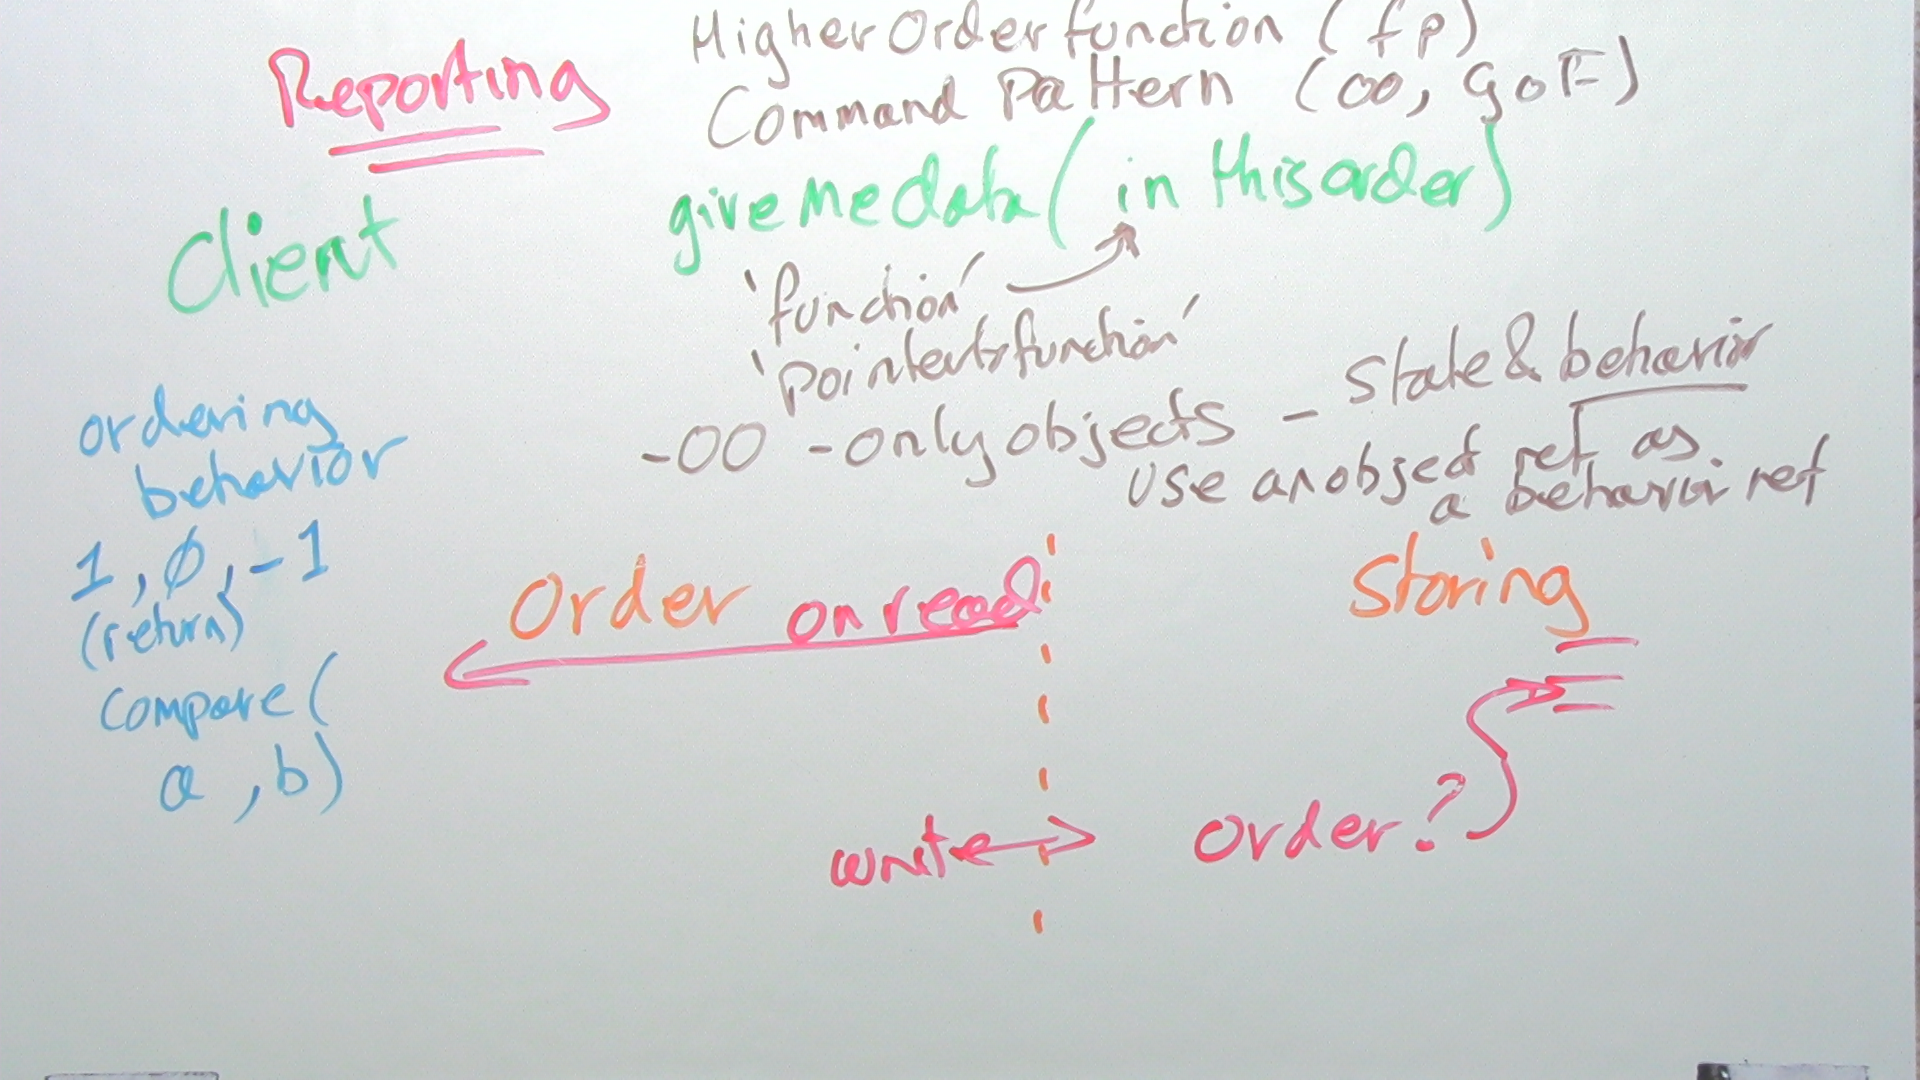 Higher Order function (fp)
Reporting
Command Pattern (OO, GoF)
Client
give me data (in this order)
'function'
'pointer to function'
-OO - only objects - State & behavior
Use an object ref as
a behavior ref
ordering
behavior
1, 0, -1
(return)
compare(
a, b)
Order on read
Storing
write
order?